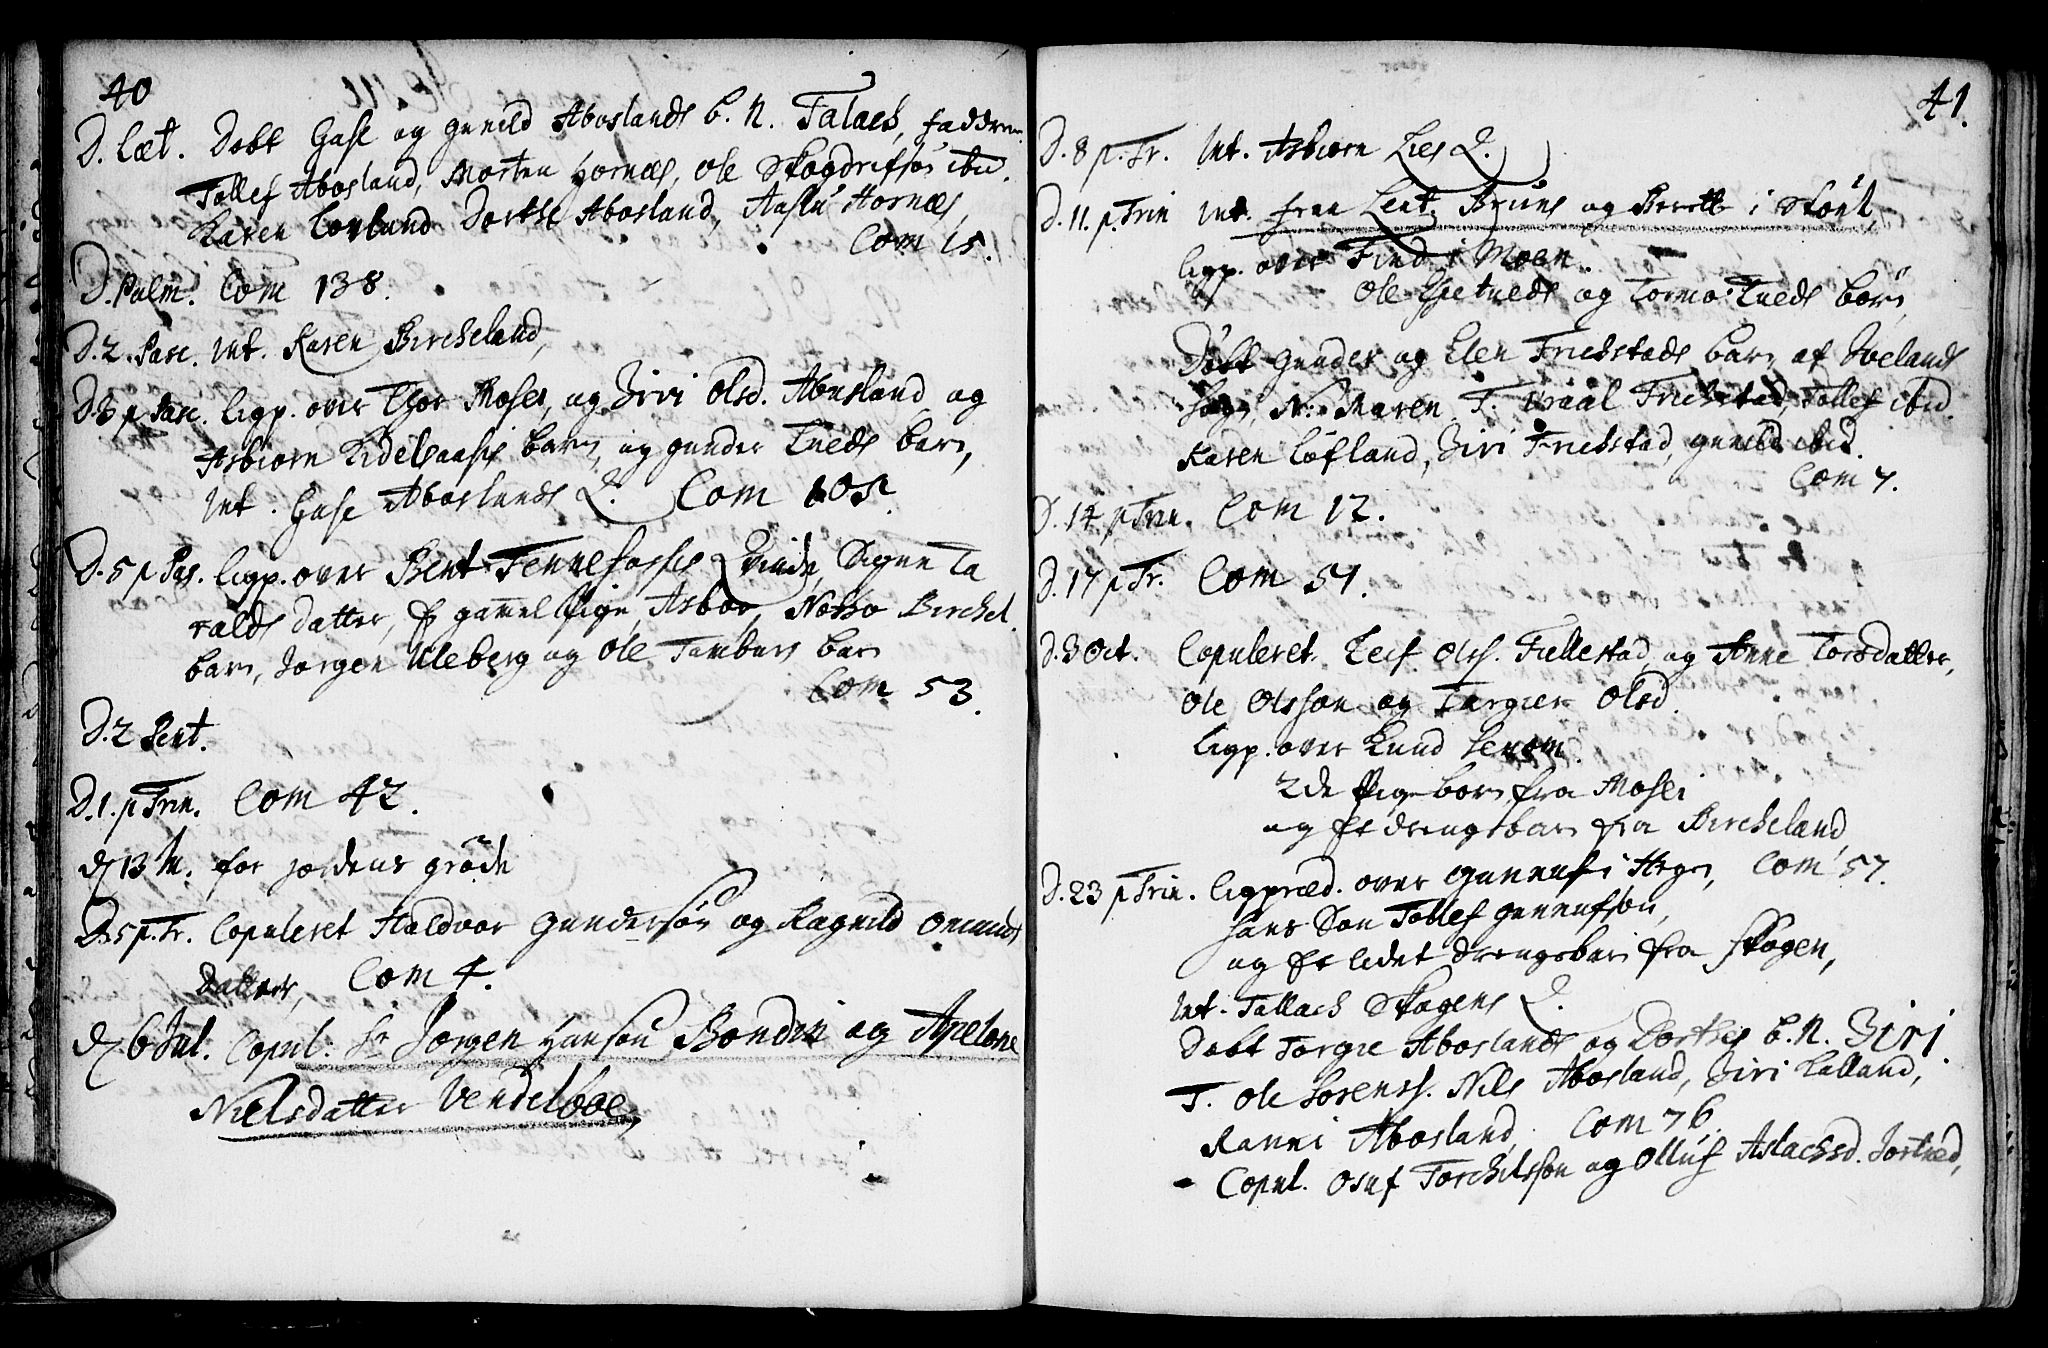 40
D. læt. Døbt Gase og gunild Aboslands b. N. Talach, faddre
Tollef Abosland, Morten Hornæs, Ole Skogdrifsøn ibid.
Karen Lovland Dorthe Abosland, Aslu Hornæs,
Com 15.
D. Palm. Com 138.
D. 2. Pasc. Int. Karen Bircheland,
D. 3 p Pasc. ligp. over Thor Mosei, og Ziri Olsd. Abusland og
Asbiorn Eidelsaasis barn, og gunder Tueds barn,
Int. Gase Aboslands Q. Com 105.
D. 5 p Pas. ligp. over Bent Fennefosses Qvinde, Signe Ta
ralds datter, Et gammel Pige, Asbor, Nottto Birchel.
barn, Jorgen Uleberg og Ole barn
Com 53.
D. 2 Pent.
D. 1. p Trin. Com 42.
d 13 for jordens grøde
D. 5 p. Tr. Copuleret Haldvor gundersøn og Ragnild Omunds
Datter, Com 4.
d 6 Jul. Copul. Sr Jorgen Hansøn Bondin og Apelone
Nielsdatter Vendelboe,
41.
D. 8 p. Tr. Int. Asbiorn Lies Q.
D. 11. p. Trin Int. frue Leut. Bruns og Berette i Skonl,
ligp. over Find i Moen.
Ole Tueds og Tormo Tueds barn,
Døbt gunder og Elen Frichstads barn af Ivelands
Sogn, N. Maren T. Frichstad, Tollef ibid.
Karen Løfland, Ziri Frichstad, gunild ibid.
Com 7.
D. 14 p Trin. Com 12.
D. 17 p Tr. Com 51.
D. 3 Oct. Copuleret. Leif Ols. Fellestad og Anne Torsdatter,
Ole Olsson og Targier Olsd.
ligp. over Knud
2de Pigebørn fra Mosei
og Et drengebarn fra Bircheland
D. 23 p Trin. ligpræd. over gunnuf i Com 57.
hans Søn Tollef gunnufsøn,
og Et lidet drengebarn fra Skogen,
Int. Tallach Skogens Q.
Døbt Torgie Aboslands og Dorthes b. N. Ziri
T. Ole Sorenss. Nils Abosland, Ziri Lalland,
Ranni Abosland, Com 76.
Copul. Osuf Torchelsson og Olluf Aslachsd. Jortved,